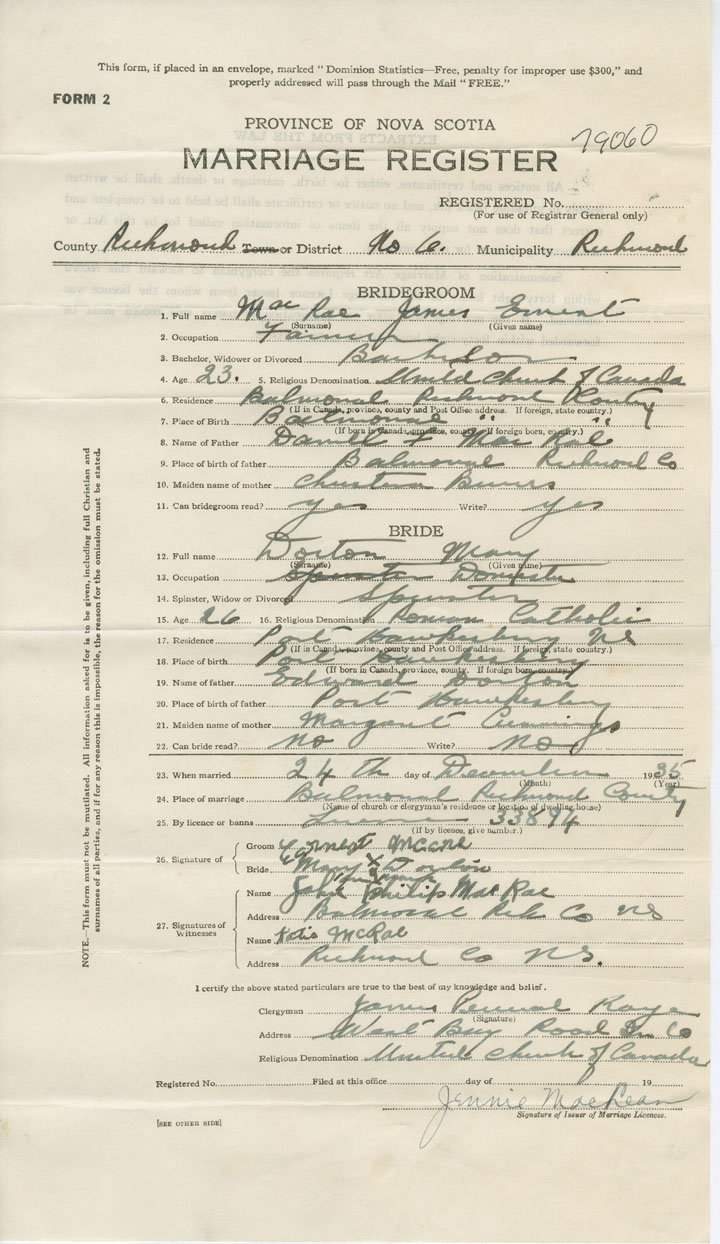 This form, if placed in an envelope, marked "Dominion Statistics—Free, penalty for improper use $300," and
properly addressed will pass through the Mail "FREE."
FORM 2
PROVINCE OF NOVA SCOTIA
79060
MARRIAGE REGISTER
REGISTERED No.
(For use of Registrar General only)
County Richmond Town or District No 6. Municipality Richmond
BRIDEGROOM
1. Full name Mac Rae James Ernest
(Surname) (Given name)
2. Occupation Farmer
3. Bachelor, Widower or Divorced Bachelor
4. Age 23. 5. Religious Denomination United Church of Canada
6. Residence Balmoral Richmond County
(If in Canada, province, county and Post Office address. If foreign, state country.)
7. Place of Birth Balmoral " "
(If born in Canada, province, county. If foreign born, country.)
8. Name of Father Daniel F Mac Rae
9. Place of birth of father Balmoral Richmond Co
10. Maiden name of mother Christina
11. Can bridegroom read? yes Write? yes
BRIDE
12. Full name Dorton Mary
(Surname) (Given name)
13. Occupation Spinster Domestic
14. Spinster, Widow or Divorced Spinster
15. Age 26 16. Religious Denomination Roman Catholic
17. Residence Port Hawkesbury NS
(If in Canada, province, county and Post Office address. If foreign, state country.)
18. Place of birth Port Hawkesbury
(If born in Canada, province, county. If foreign born, country)
19. Name of father Edward Dorton
20. Place of birth of father Port Hawkesbury
21. Maiden name of mother Margaret Cummings
22. Can bride read? No Write? No
23. When married 24 th day of December 1935
(Month) (Year)
24. Place of marriage Balmoral Richmond County
(Name of church or clergyman's residence or location of dwelling house)
25. By licence or banns License 33894
(If by licence, give number.)
26. Signature of
Groom Earnest McRae
Bride Mary X Dorton
27. Signatures of Witnesses
Name John Philip Mac Rae
Address Balmoral Rich Co NS
Name Katie McRae
Address Richmond Co NS.
I certify the above stated particulars are true to the best of my knowledge and belief.
Clergyman James Percival Kaye
(Signature)
Address West Bay Road Co
Religious Denomination United Church of Canada
Registered No. Filed at this office day of 19
Jennie MacLean
Signature of Issuer of Marriage Licences.
[SEE OTHER SIDE]
NOTE.—This form must not be mutilated. All information asked for is to be given, including full Christian and
surnames of all parties, and if for any reason this is impossible, the reason for the omission must be stated.